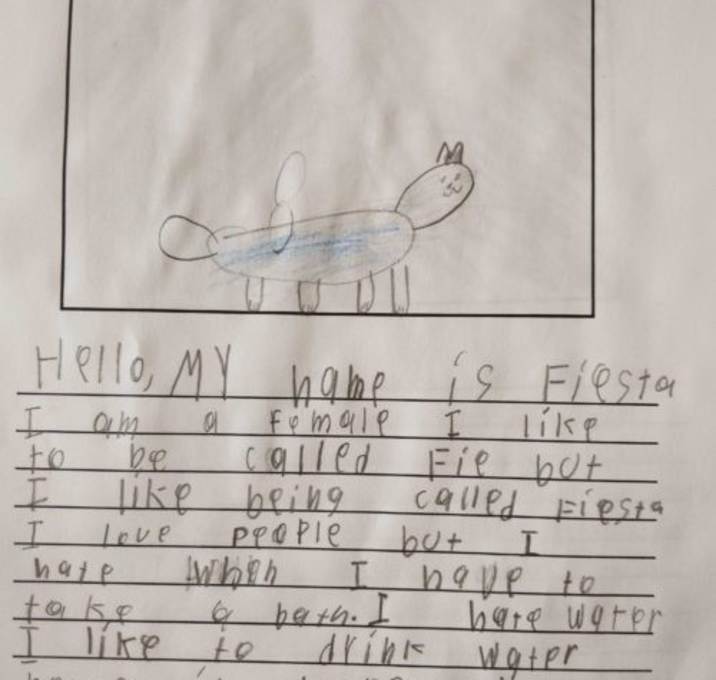 Hello, MY name is Fiesta
I am a Female I like
to be called Fie but
I like being called Fiesta
I love people but I
hate when I have to
take a bath. I hate water
I like to drink water